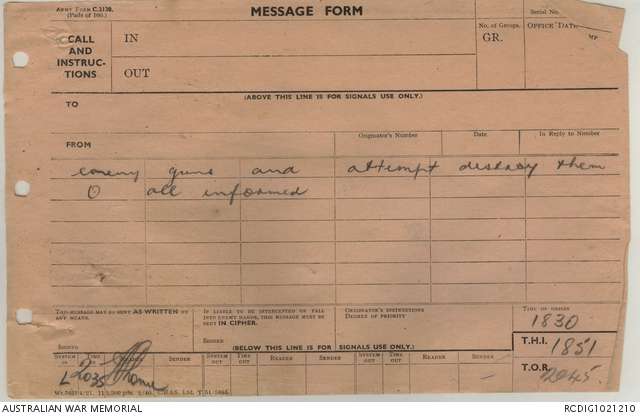 ARMY FORM C.2128.
(Pads of 100.)
MESSAGE FORM
Serial No.
CALL
AND
INSTRUC-
TIONS
IN
OUT
No. of Groups.
GR.
OFFICE DATE
(ABOVE THIS LINE IS FOR SIGNALS USE ONLY.)
TO
FROM
Originator's Number
Date
In Reply to Number
enemy guns and attempt destroy them
O all informed
THIS MESSAGE MAY BE SENT AS WRITTEN BY
ANY MEANS.
SIGNED
IF LIABLE TO BE INTERCEPTED OR FALL
INTO ENEMY HANDS, THIS MESSAGE MUST BE
SENT IN CIPHER.
SIGNED
ORIGINATOR'S INSTRUCTIONS
DEGREE OF PRIORITY
TIME OF ORIGIN
1830
(BELOW THIS LINE IS FOR SIGNALS USE ONLY.)
T.H.I. 1851
SYSTEM TIME READER SENDER SYSTEM OUT TIME OUT READER SENDER SYSTEM OUT TIME OUT READER SENDER
T.O.R. 2045.
L 2035
AUSTRALIAN WAR MEMORIAL
RCDIG1021210